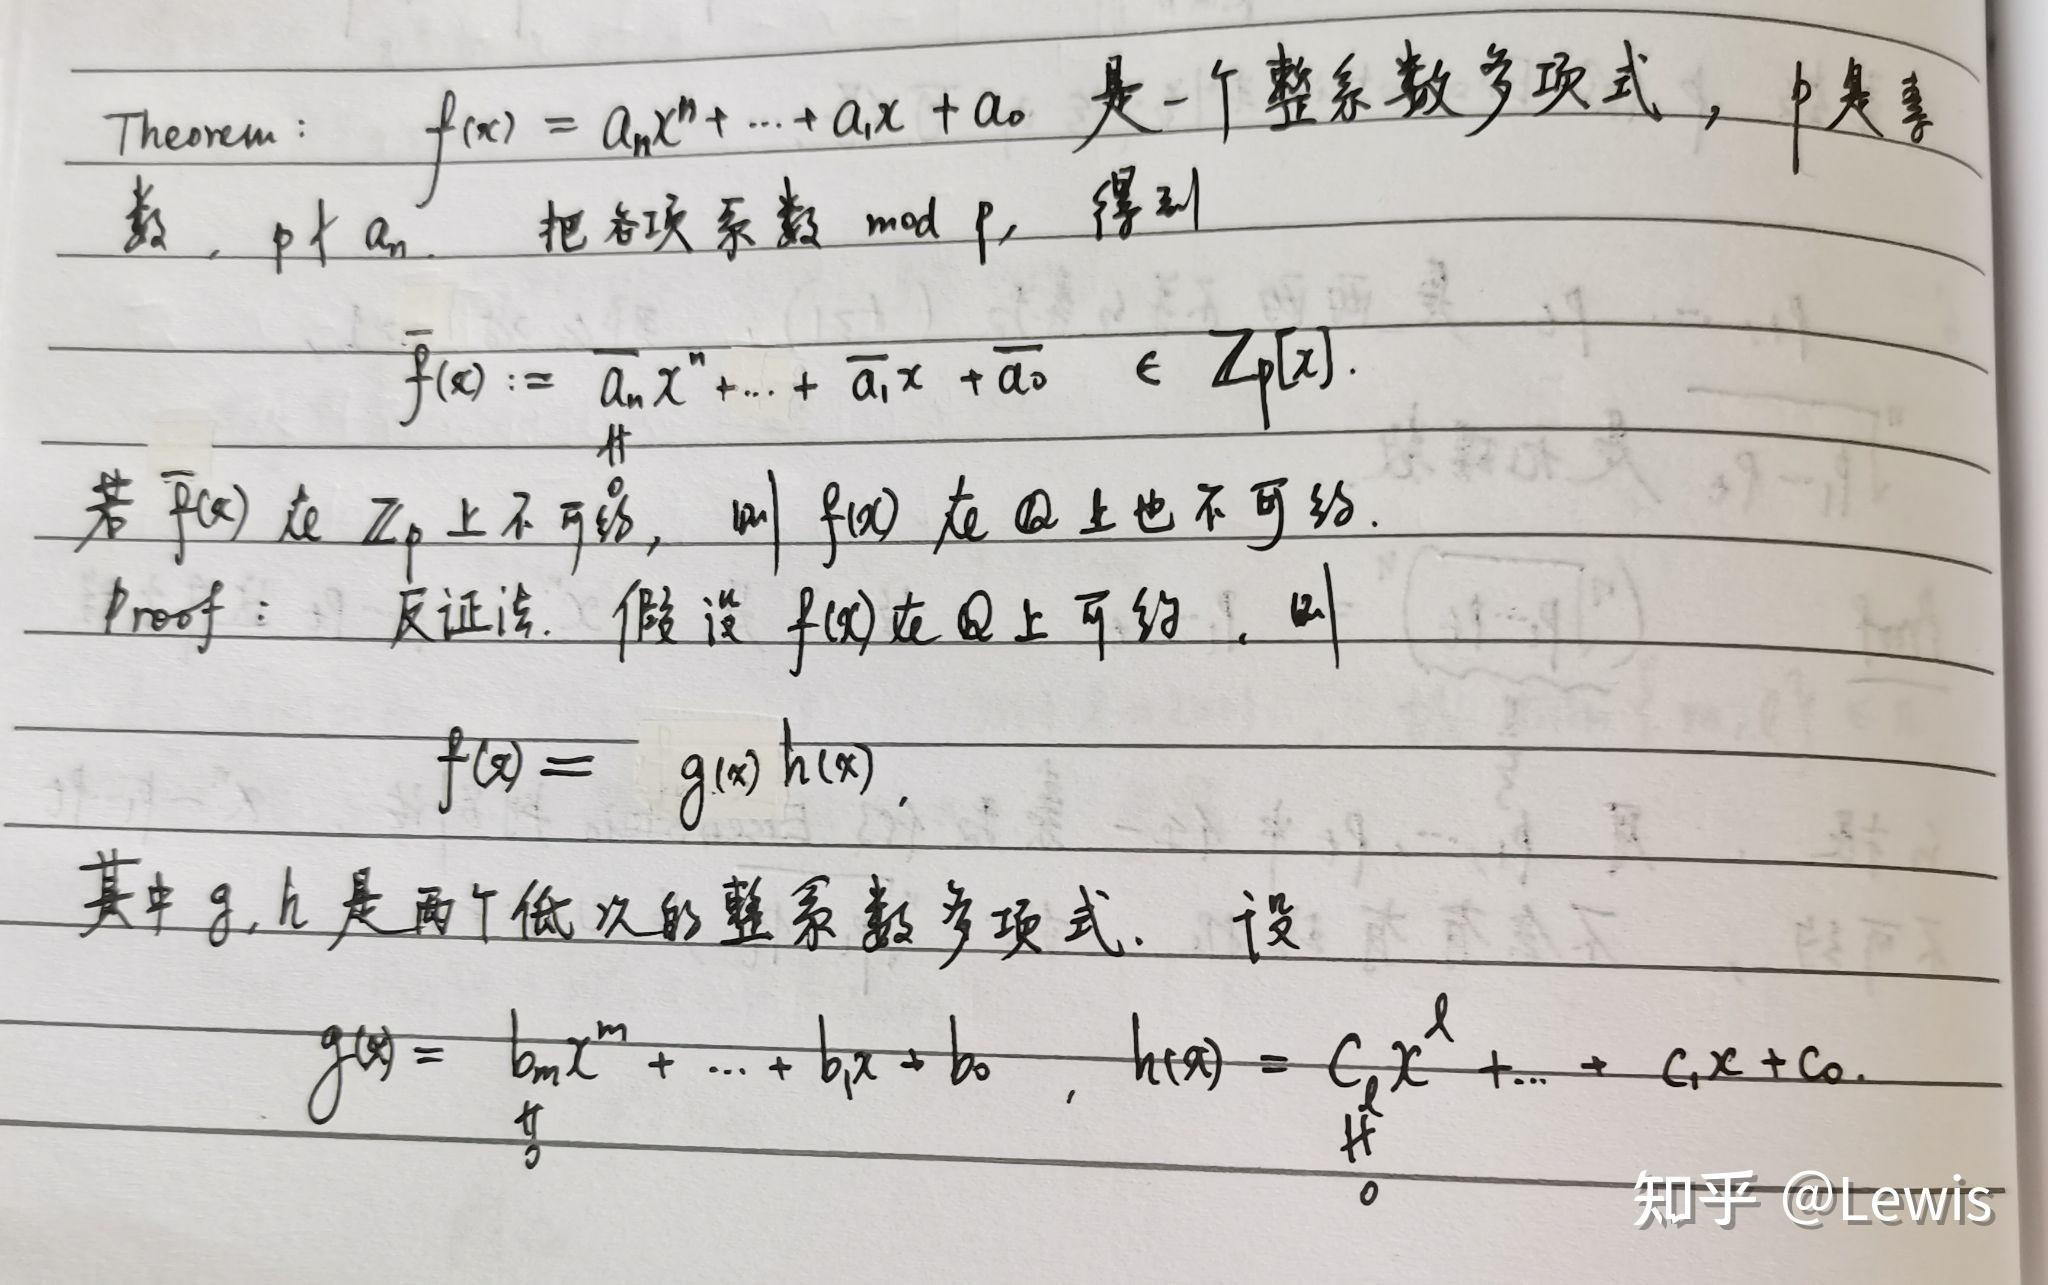 Theorem: f(x) = aₙxⁿ + ... + a₁x + a₀ 是一个整系数多项式, p是素
数, p∤aₙ. 把各项系数 mod p, 得到
f̄(x) := āₙxⁿ + ... + ā₁x + ā₀ ∈ ℤₚ[x].
≠
0
若 f̄(x) 在 ℤₚ 上不可约, 则 f(x) 在 ℚ 上也不可约.
Proof: 反证法. 假设 f(x) 在 ℚ 上可约, 则
f(x) = g(x)h(x),
其中 g, h 是两个低次的整系数多项式. 设
g(x) = bₘxᵐ + ... + b₁x + b₀, h(x) = cₗxˡ + ... + c₁x + c₀.
≠ ≠
0 0
知乎 @Lewis